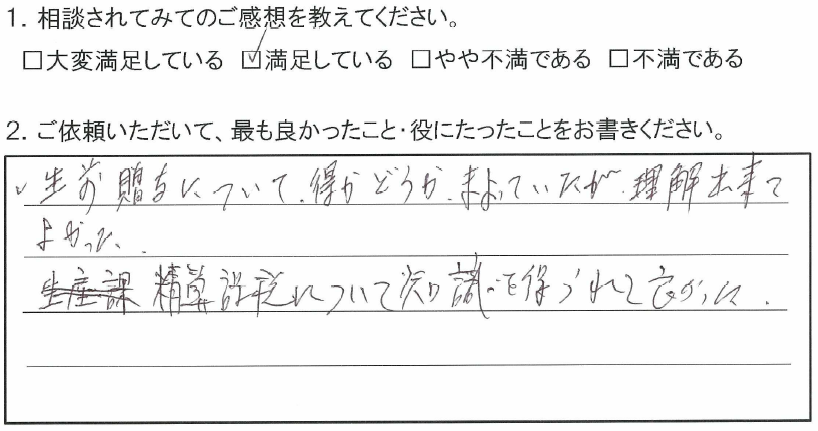 1. 相談されてみてのご感想を教えてください。
□大変満足している ☑満足している □やや不満である □不満である
2. ご依頼いただいて、最も良かったこと・役にたったことをお書きください。
✓生前贈与について、得かどうか、まよっていたが、理解出来て
よかった。
生産課 精算課税について知識を得られて良かった。